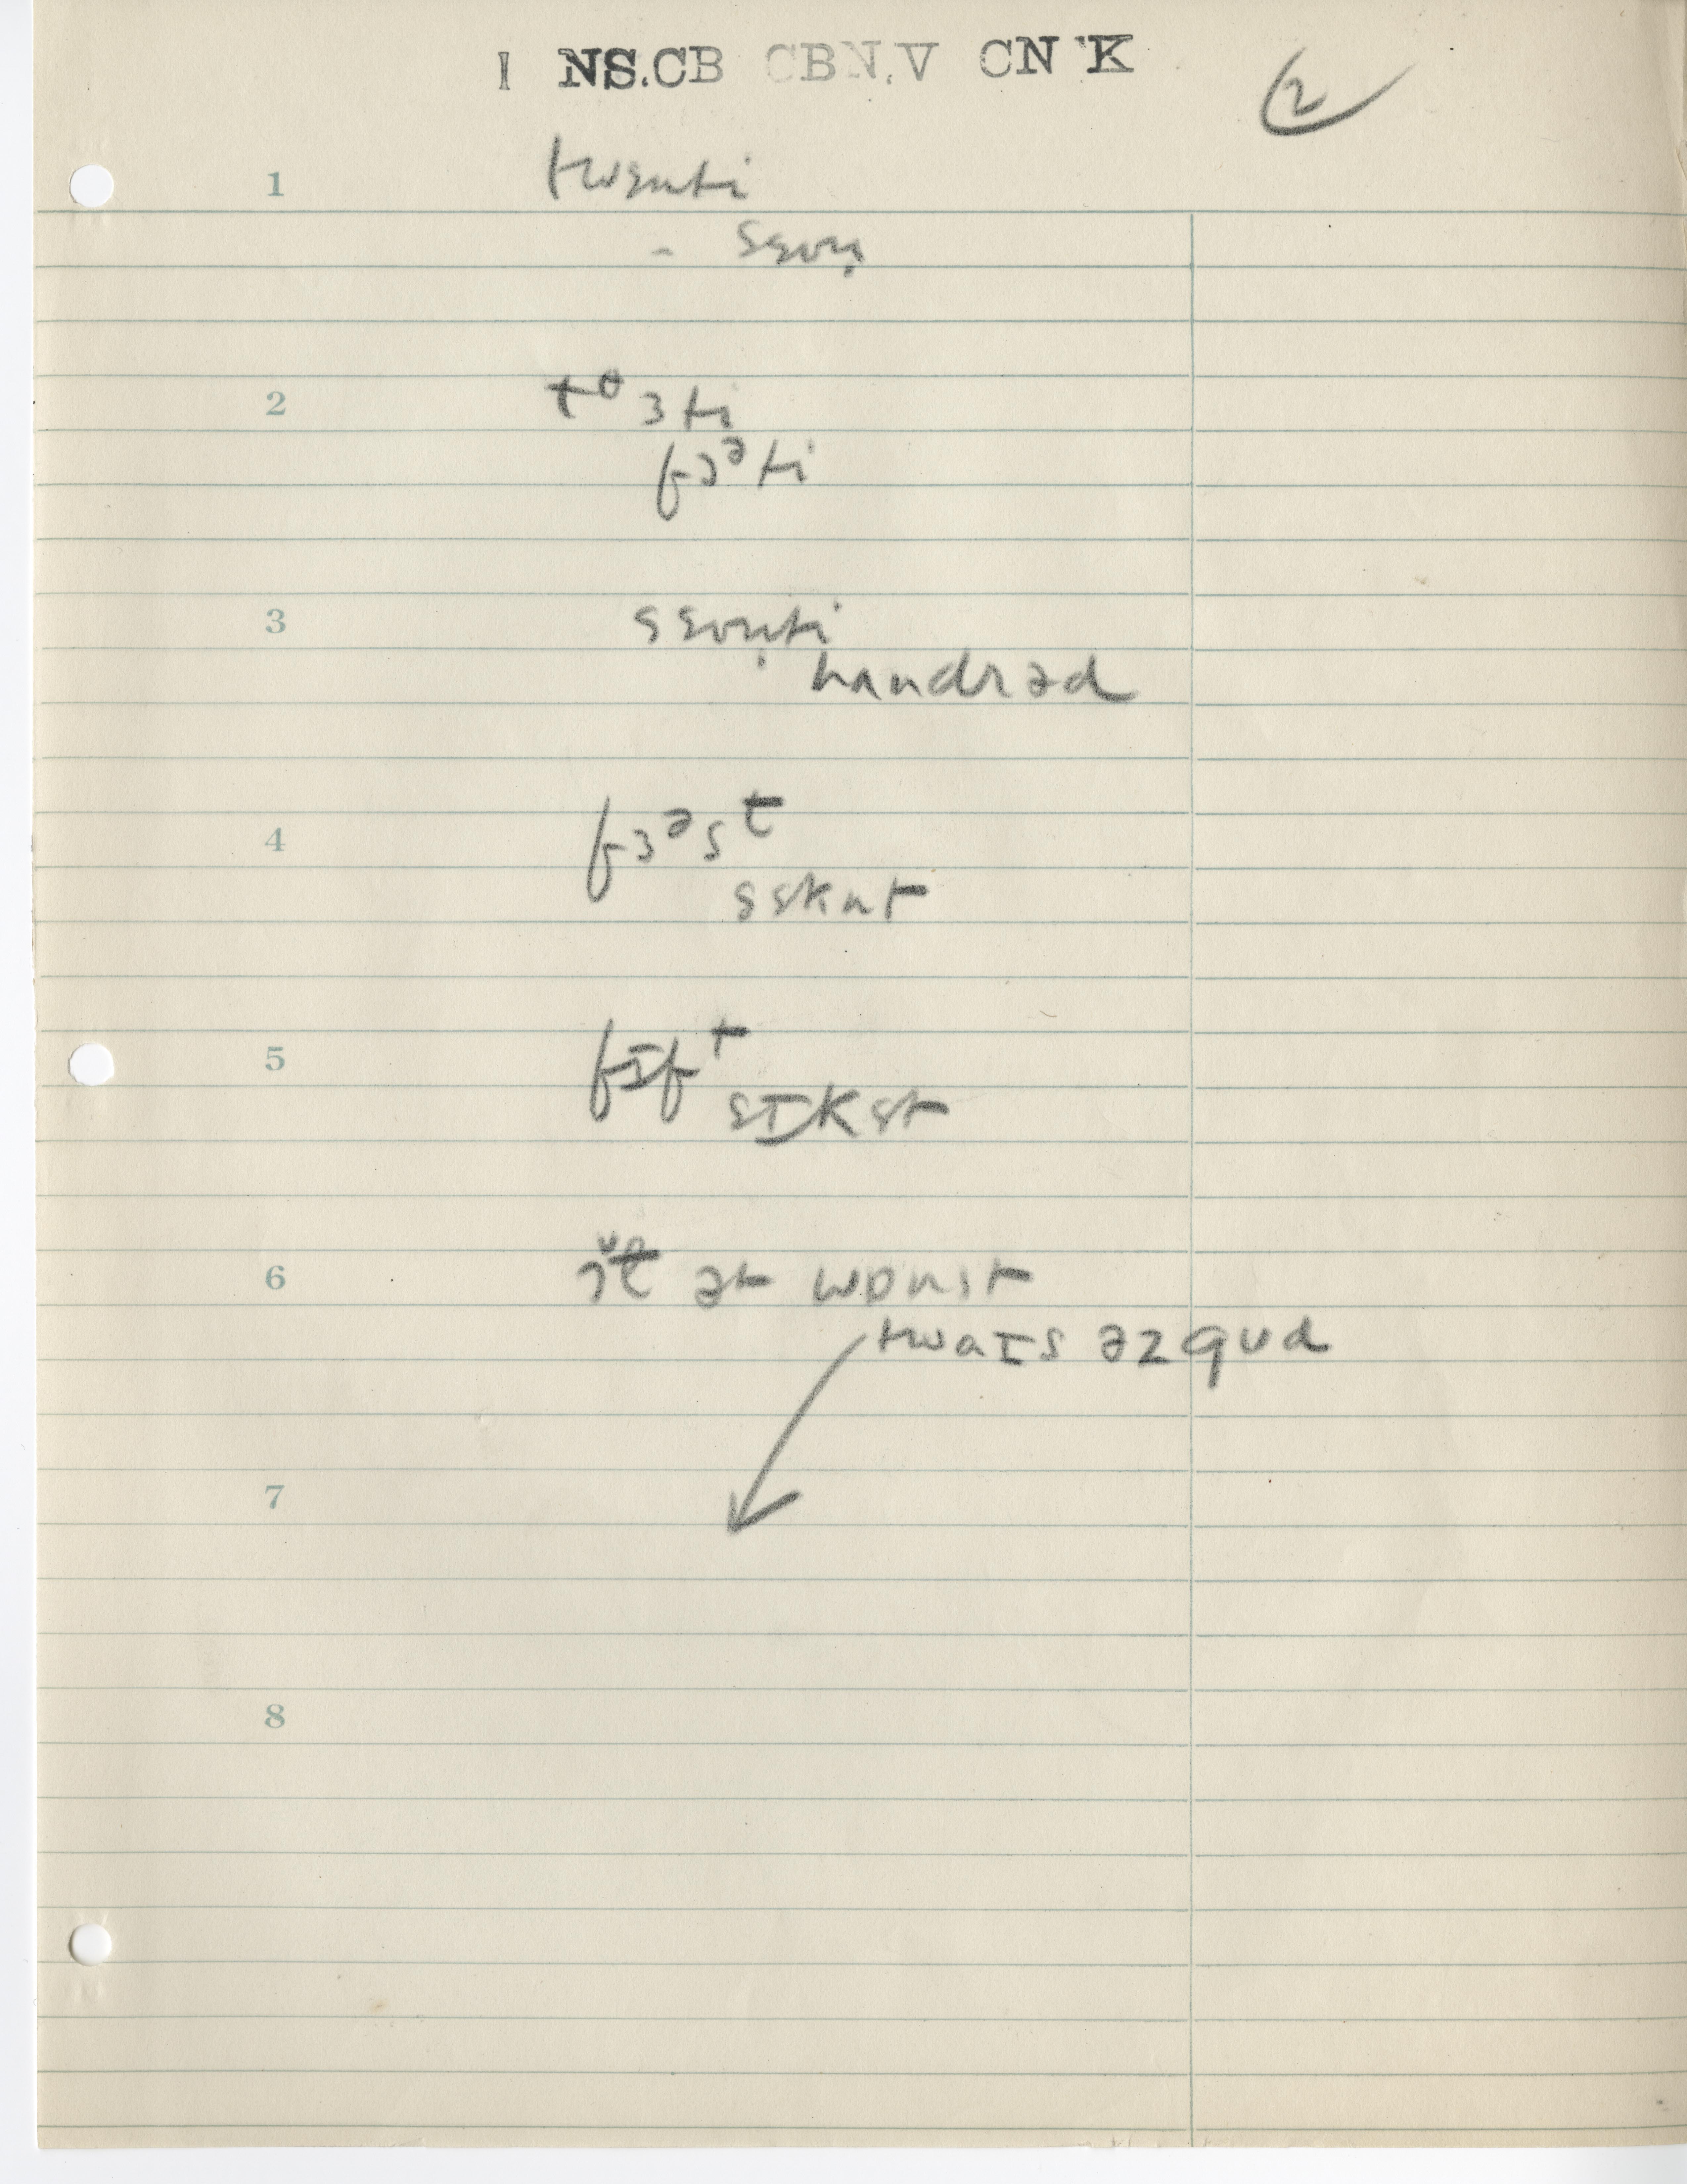 1 NS.CB CBN.V CN'K
2
1 twɛnti
- sɛvn̩
2 tᶿɜti
fɔᵊti
3 sɛvn̩ti
hʌndrəd
4 fɜᵊst
sɛknt
5 fɪft
sɪkst
6 ət wɒnst
twaɪs əz gud
7
8